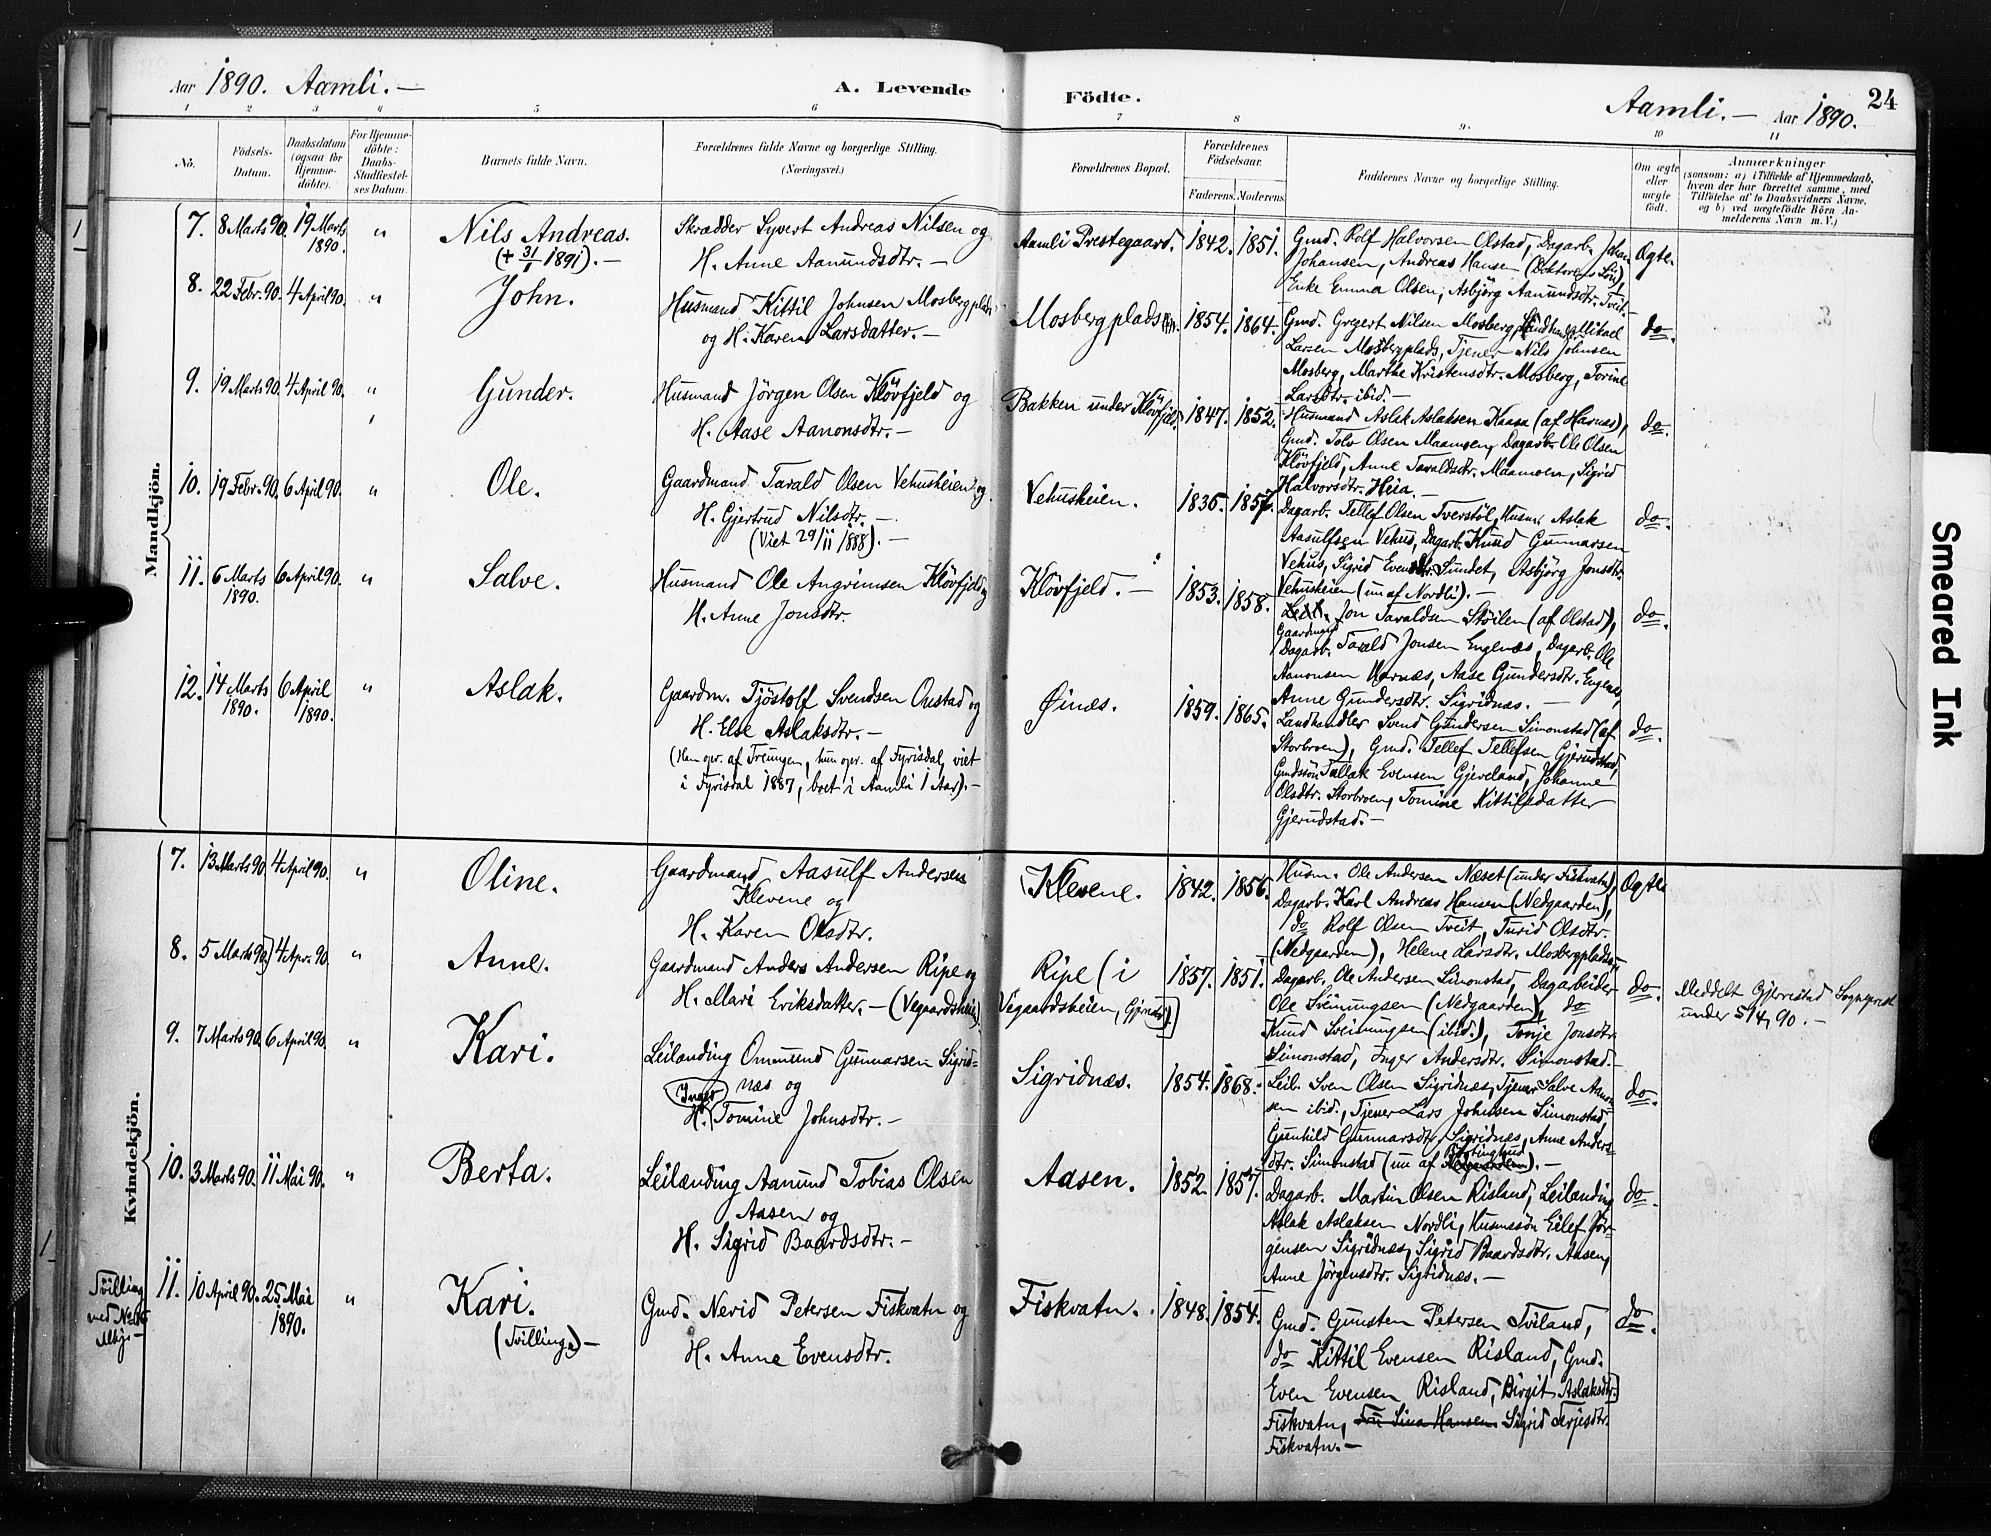 Aar 1890. Aamli. —
A. Levende
Födte.
Aamli. — Aar 1890.
24
1 2 3 4 5 6 7 8 9. 10 11
No.
Födsels-Datum.
Daabsdatum (ogsaa for Hjemme-döbte).
For Hjemme-döbte: Daabs-Stadfæstel-ses Datum.
Barnets fulde Navn.
Forældrenes fulde Navne og borgerlige Stilling.
(Næringsvei.)
Forældrenes Bopæl.
Forældrenes Födselsaar.
Faderens. Moderens.
Faddernes Navne og borgerlige Stilling.
Om ægte eller uægte födt.
Anmærkninger
(saasom: a) i Tilfælde af Hjemmedaab,
hvem der har forrettet samme, med
Tilföielse af to Daabsvidners Navne,
og b) ved uægtefödte Börn An-
melderens Navn m. V.)
Mandkjön.
7. 8 Marts 90. 19 Marts 1890. " Nils Andreas.
(+ 31/1 1891). —
Skrædder Syvert Andreas Nilsen og
H. Anne Aanundsdtr. —
Aamli Prestegaard. 1842. 1851.
Gmd. Rolf Halvorsen Olstad, Dagarb. Johan
Johansen, Andreas Hansen (Doktorens Sön),
Enke Emma Olsen, Asbjörg Aanundsdtr. Tveit. —
Ægte.
8. 22 Febr. 90. 4 April 90. " John.
Husmand Kittil Johnsen Mosbergplads
og H. Karen Larsdatter. —
Mosbergplads 1854. 1864.
Gmd. Gregert Nilsen Mosberg, Landhandler Mikael
Larsen Mosbergplads, Tjener Nils Johnsen
Mosberg, Marthe Kristensdtr. Mosberg, Torine
Larsdtr. ibid. —
do.
9. 19 Marts 90. 4 April 90. " Gunder.
Husmand Jörgen Olsen Klövfjeld og
H. Aase Aanonsdtr. —
Bakken under Klövfjeld. 1847. 1852.
Husmand Aslak Aslaksen Kaasa (af Harnæs),
Gmd. Tolv Olsen Maamoen, Dagarb. Ole Olsen
Klövfjeld, Anne Taraldsdtr. Maamoen, Sigrid
Halvorsdtr. Heia. —
do.
10. 19 Febr. 90. 6 April 90. " Ole.
Gaardmand Tarald Olsen Vehusheien og
H. Gjertrud Nilsdtr. —
(Viet 29/11 1888). —
Vehusheien. 1836. 1857.
Dagarb. Tellef Olsen Tverstöl, Husm. Aslak
Aasulfsen Vehus, Dagarb. Knud Gunnarsen
Vehus, Sigrid Evensdtr. Sundet, Asbjörg Jonsdtr.
Vehusheien (nu af Nordli). —
do.
11. 6 Marts 1890. 6 April 90. " Salve.
Husmand Ole Angrimsen Klövfjeld og
H. Anne Jonsdtr.
Klövfjeld. — 1853. 1858.
Jon Taraldsen Stöilen (af Olstad),
Gaardmand
Dagarb. Tarald Jonsen Englnæs, Dagarb. Ole
Aanonsen Harnæs, Aase Gundersdtr. Englnæs,
Anne Gundersdtr. Sigridnæs. —
do.
12. 14 Marts 1890. 6 April 1890. " Aslak.
Gaardm. Tjöstolf Svendsen Onstad og
H. Else Aslaksdtr. —
(Han opr. af Treungen, hun opr. af Fyrisdal, viet
i Fyrisdal 1887, boet i Aamli 1 Aar). —
Öinæs. 1859. 1865.
Landhandler Svend Gundersen Simonstad (af
Storbroen), Gmd. Tellef Tellefsen Gjerudstad,
Gmdssön Tallak Evensen Gjeveland, Johanne
Olsdtr. Storbroen, Tomine Kittilsdatter
Gjerudstad. —
do.
Kvindekjön.
7. 13 Marts 90. 4 April 90. " Oline.
Gaardmand Aasulf Andersen
Klevene og
H. Karen Olsdtr.
Klevene. 1842. 1856.
Husm. Ole Andersen Næset (under Fiskvatn),
Dagarb. Karl Andreas Hansen (Nedgaarden),
do Rolf Olsen Tveit, Turid Olsdtr.
(Nedgaarden), Helene Larsdtr. Mosbergplads. —
Ægte.
8. 5 Marts 90. 4 Apr. 90. " Anne.
Gaardmand Anders Andersen Ripe og
H. Mari Eriksdatter. — (Vegaardsheien).
Ripe (i
Vegaardsheien, Gjerrestad) 1857. 1851.
Dagarb. Ole Andersen Simonstad, Dagarbeider
Ole Sveinungsen (Nedgaarden), do
Knud Sveinungsen (ibid.), Tonje Jonsdtr.
Simonstad, Inger Andersdtr. Simonstad. —
do.
Meddelt Gjerrestad Sogneprest
under 5/4 90. —
9. 7 Marts 90. 6 April 90. " Kari.
Leilænding Ommund Gunnarsen Sigrid-
næs og
(Inger)
H. Tomine Johnsdtr. —
Sigridnæs. 1854. 1868.
Leil. Sven Olsen Sigridnæs, Tjener Salve Aanon-
sen ibid., Tjener Lars Johnsen Simonstad,
Gunhild Gunnarsdtr. Sigridnæs, Anne Anders-
dtr. Simonstad (nu af ). —
do.
10. 3 Marts 90. 11 Mai 90. " Berta.
Leilænding Aanund Tobias Olsen
Aasen og
H. Sigrid Baardsdtr. —
Aasen. 1852. 1857.
Dagarb. Martin Olsen Risland, Leilænding
Aslak Aslaksen Nordli, Husmssön Eilef Jör-
gensen Sigridnæs, Sigrid Baardsdtr. Aasen,
Anne Jörgensdtr. Sigridnæs. —
do.
Tvilling
med No 15
Mkj. —
11. 10 April 90. 25 Mai 1890. " Kari.
(Tvilling) —
Gmd. Nerid Petersen Fiskvatn og
H. Anne Evensdtr.
Fiskvatn. 1848. 1854.
Gmd. Gunsten Petersen Tviland,
do Kittil Evensen Risland, Gmd.
Even Evensen Risland, Birgit Aslaksdtr.
Fiskvatn, Fru Sina Hansen Sigrid Terjesdtr.
Fiskvatn. —
do.
Smeared Ink